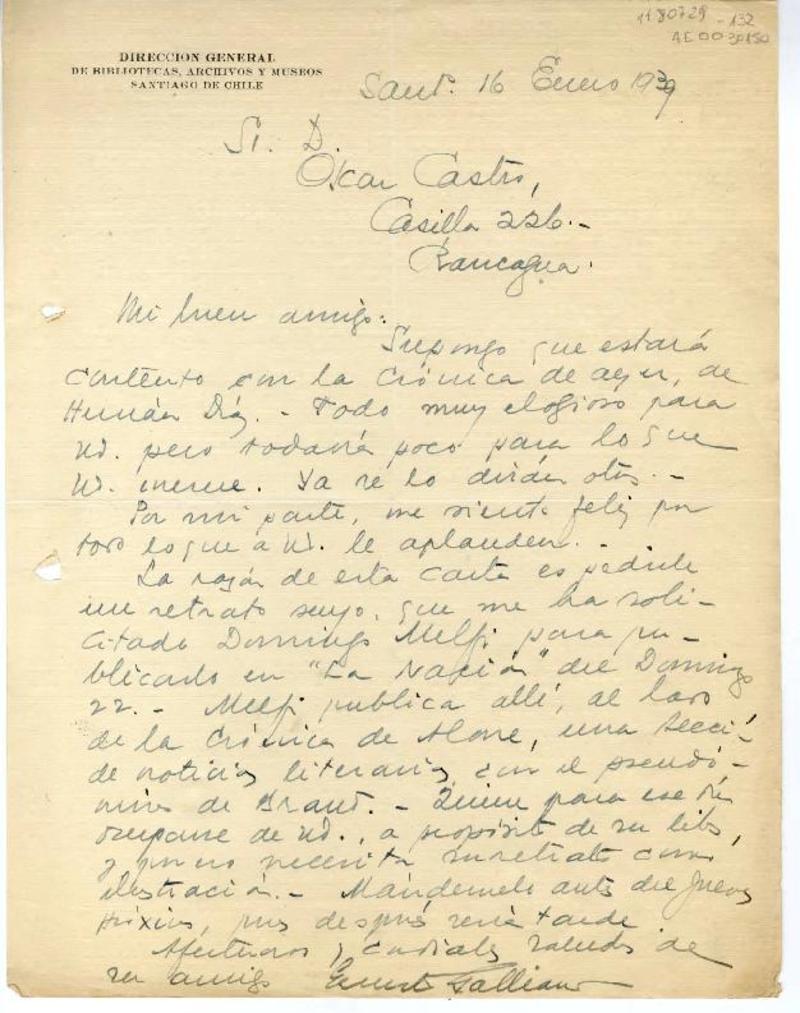 1180729-132
AE0030150
DIRECCION GENERAL
DE BIBLIOTECAS, ARCHIVOS Y MUSEOS
SANTIAGO DE CHILE
Sant. 16 Enero 1939
Sr. D.
Oscar Castro,
Casilla 226.-
Rancagua.
Mi buen amigo:
Supongo que estará
contento con la crónica de ayer, de
Hernán Díaz. - Todo muy elogioso para
Ud. pero todavía poco para lo que
Ud. merece. Ya se lo dirán otros. -
Por mi parte, me siento feliz por
todo lo que a Ud. le aplauden. -
La razón de esta carta es pedirle
un retrato suyo, que me ha soli-
citado Domingo Melfi para pu-
blicarlo en "La Nación" del Domingo
22. - Melfi publica allí, al lado
de la Crónica de Alone, una secció
de noticias literarias, con el pseudó-
nimo de Brand. - Quiere para ese día
ocuparse de Ud., a propósito de su libro,
y por eso necesita su retrato como
ilustración. - Mándemelo antes del Jueves
próximo, pues después sería tarde
Afectuosos y cordiales saludos de
su amigo Ernesto Galliano